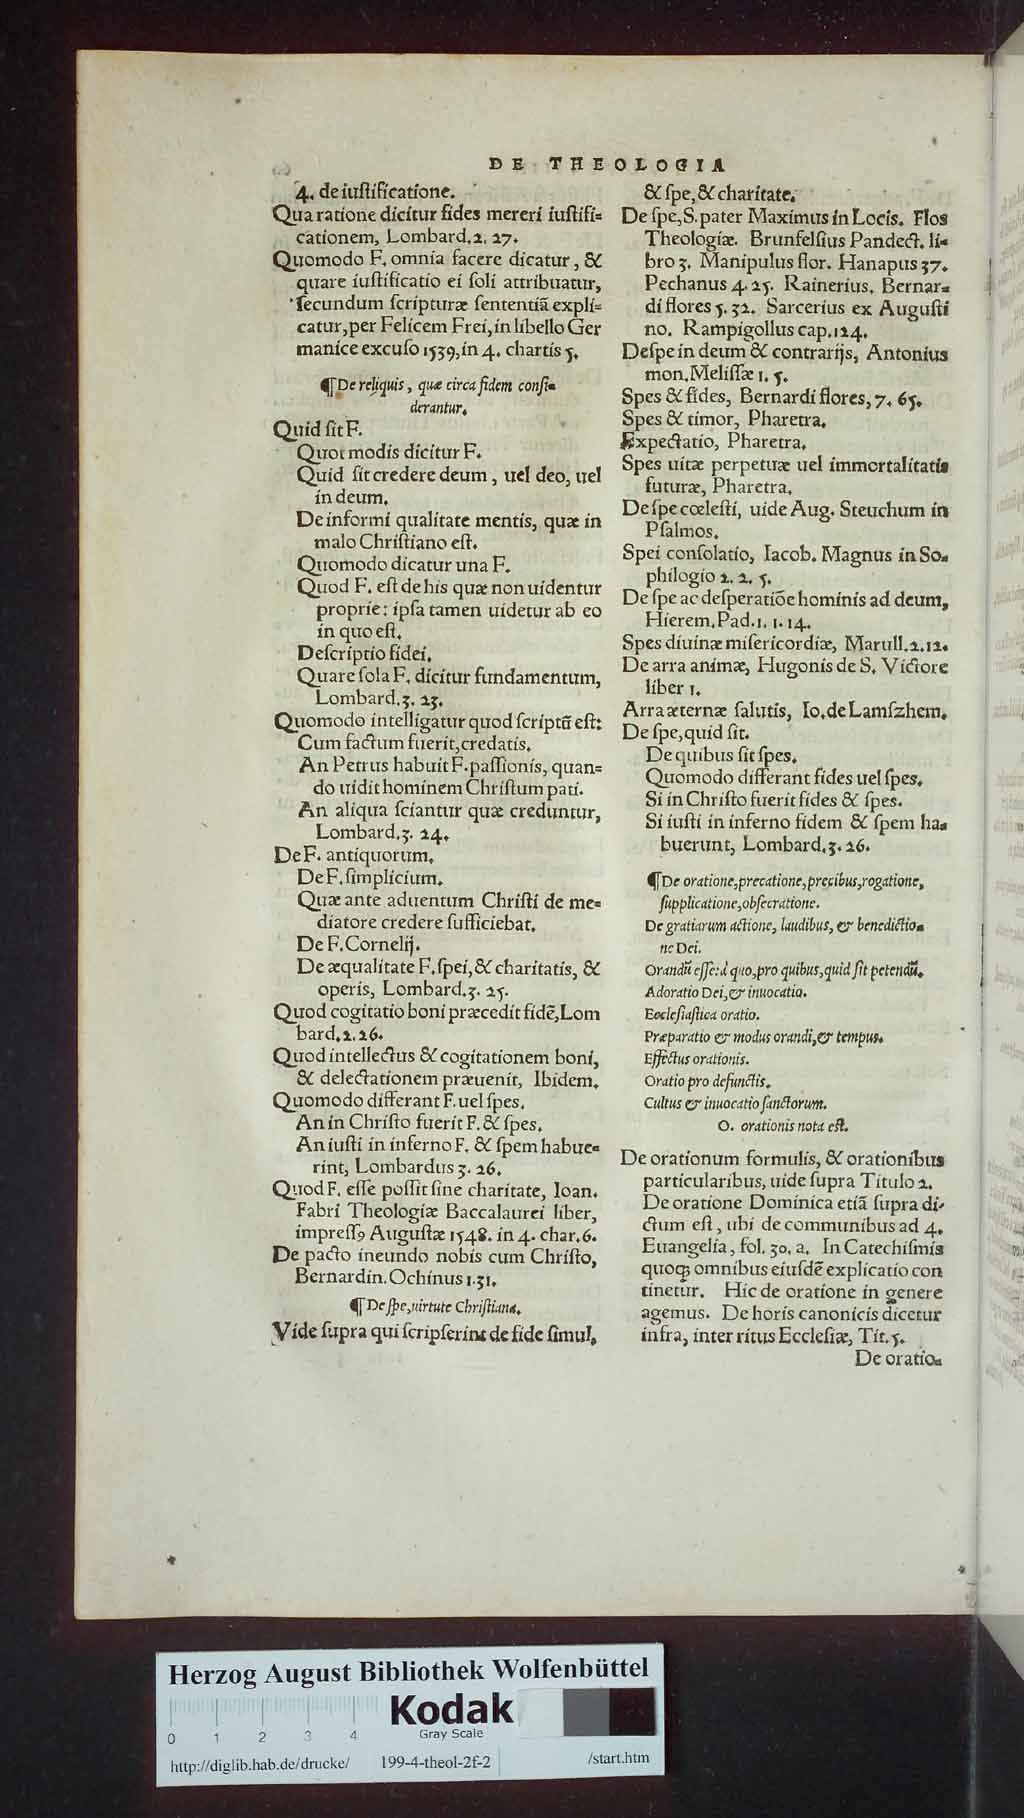 DE THEOLOGIA
4. de iuſtificatione.
Qua ratione dicitur fides mereri iuſtifi=
cationem, Lombard. 2. 27.
Quomodo F. omnia facere dicatur, &
quare iuſtificatio ei ſoli attribuatur,
ſecundum ſcripturæ ſententiã expli=
catur, per Felicem Frei, in libello Ger
manice excuſo 1539, in 4. chartis 5.
¶ De reliquis, quæ circa fidem conſi=
derantur.
Quid ſit F.
Quot modis dicitur F.
Quid ſit credere deum, uel deo, uel
in deum.
De informi qualitate mentis, quæ in
malo Chriſtiano eſt.
Quomodo dicatur una F.
Quod F. eſt de his quæ non uidentur
proprie: ipſa tamen uidetur ab eo
in quo eſt.
Deſcriptio fidei.
Quare ſola F. dicitur fundamentum,
Lombard. 3. 23.
Quomodo intelligatur quod ſcriptũ eſt:
Cum factum fuerit, credatis.
An Petrus habuit F. paſſionis, quan=
do uidit hominem Chriſtum pati.
An aliqua ſciantur quæ creduntur,
Lombard. 3. 24.
De F. antiquorum.
De F. ſimplicium.
Quæ ante aduentum Chriſti de me=
diatore credere ſufficiebat.
De F. Cornelij.
De æqualitate F. ſpei, & charitatis, &
operis, Lombard. 3. 25.
Quod cogitatio boni præcedit fidẽ, Lom
bard. 2. 26.
Quod intellectus & cogitationem boni,
& delectationem præuenit, Ibidem.
Quomodo differant F. uel ſpes.
An in Chriſto fuerit F. & ſpes.
An iuſti in inferno F. & ſpem habue=
rint, Lombardus 3. 26.
Quod F. eſſe poſſit ſine charitate, Ioan.
Fabri Theologiæ Baccalaurei liber,
impreſſꝰ Auguſtæ 1548. in 4. char. 6.
De pacto ineundo nobis cum Chriſto,
Bernardin. Ochinus 1. 31.
¶ De ſpe, uirtute Chriſtiana.
Vide ſupra qui ſcripſerint de fide ſimul,
& ſpe, & charitate.
De ſpe, S. pater Maximus in Locis. Flos
Theologiæ. Brunfelſius Pandect. li=
bro 3. Manipulus flor. Hanapus 37.
Pechanus 4. 25. Rainerius. Bernar=
di flores 5. 32. Sarcerius ex Auguſti
no. Rampigollus cap. 124.
De ſpe in deum & contrarijs, Antonius
mon. Meliſſæ 1. 5.
Spes & fides, Bernardi flores, 7. 65.
Spes & timor, Pharetra.
Expectatio, Pharetra.
Spes uitæ perpetuæ uel immortalitatis
futuræ, Pharetra.
De ſpe cœleſti, uide Aug. Steuchum in
Pſalmos.
Spei conſolatio, Iacob. Magnus in So=
philogio 2. 2. 5.
De ſpe ac deſperatiõe hominis ad deum,
Hierem. Pad. 1. 1. 14.
Spes diuinæ miſericordiæ, Marull. 2. 12.
De arra animæ, Hugonis de S. Victore
liber 1.
Arra æternæ ſalutis, Io. de Lamſzhem.
De ſpe, quid ſit.
De quibus ſit ſpes.
Quomodo differant fides uel ſpes.
Si in Chriſto fuerit fides & ſpes.
Si iuſti in inferno fidem & ſpem ha=
buerunt, Lombard. 3. 26.
¶ De oratione, precatione, precibus, rogatione,
ſupplicatione, obſecratione.
De gratiarum actione, laudibus, & benedictio=
ne Dei.
Orandũ eſſe: à quo, pro quibus, quid ſit petendũ.
Adoratio Dei, & inuocatio.
Eccleſiaſtica oratio.
Præparatio & modus orandi, & tempus.
Effectus orationis.
Oratio pro defunctis.
Cultus & inuocatio ſanctorum.
O. orationis nota eſt.
De orationum formulis, & orationibus
particularibus, uide ſupra Titulo 2.
De oratione Dominica etiã ſupra di=
ctum eſt, ubi de communibus ad 4.
Euangelia, fol. 30. a. In Catechiſmis
quoq; omnibus eiuſdẽ explicatio con
tinetur. Hic de oratione in genere
agemus. De horis canonicis dicetur
infra, inter ritus Eccleſiæ, Tit. 5.
De oratio=
Herzog August Bibliothek Wolfenbüttel
Kodak
Gray Scale
0 1 2 3 4
http://diglib.hab.de/drucke/ 199-4-theol-2f-2 /start.htm